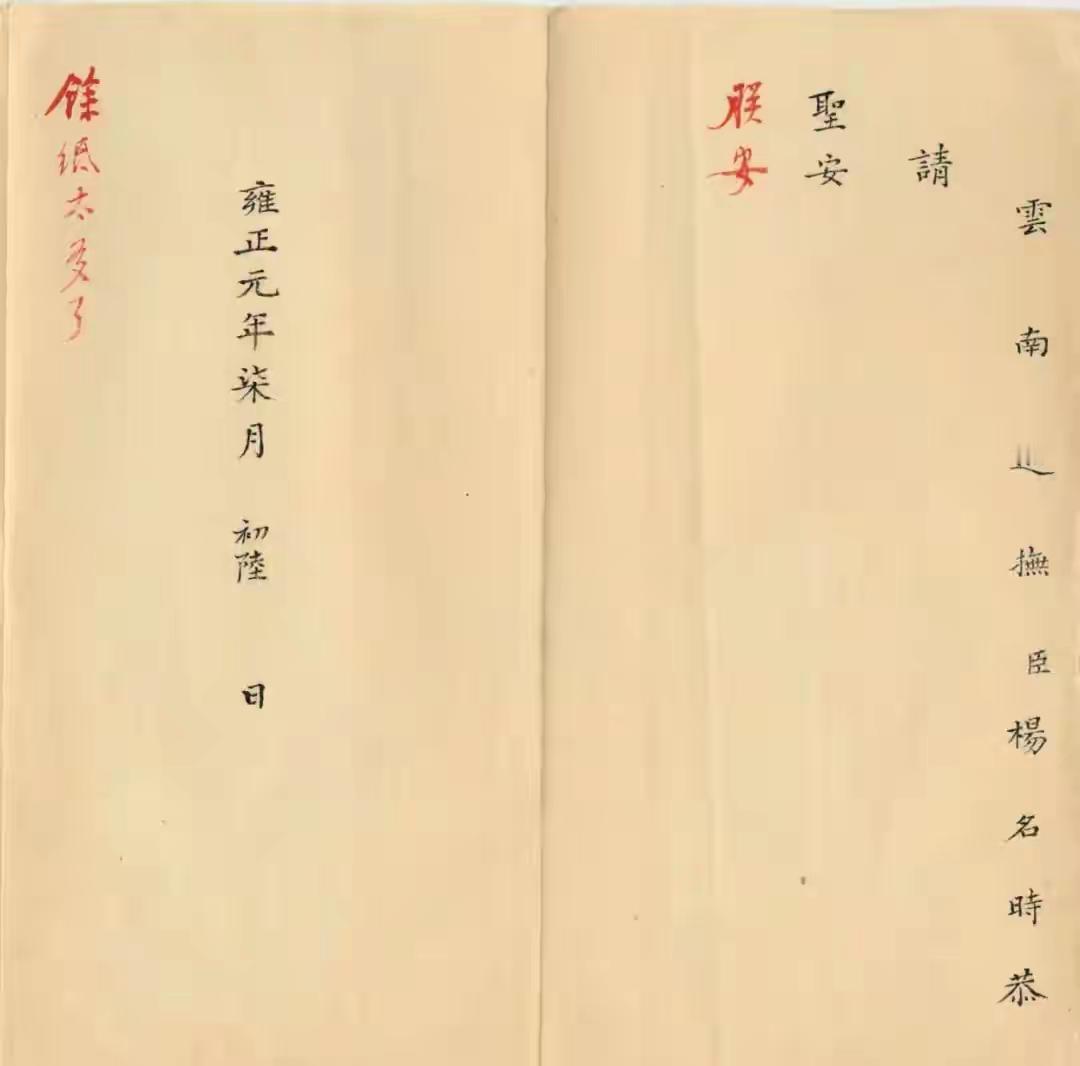 雲南撫臣楊名時恭
請
聖安
朕安
雍正元年柒月初陸日
餘紙太多了